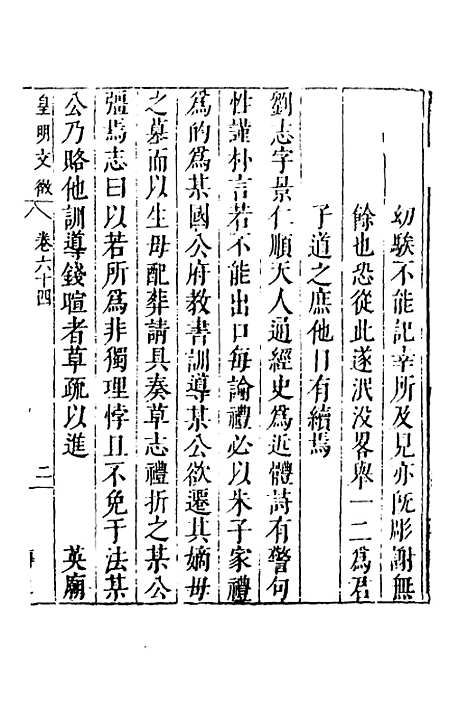 幼騃不能記幸所及見亦旣彫謝無
餘也恐從此遂泯没畧舉一二爲君
子道之庶他日有續焉
劉志字景仁順天人通經史爲近體詩有警句
性謹朴言若不能出口每論禮必以朱子家禮
爲的爲某國公府教書訓導某公欲遷其嫡母
之墓而以生母配葬請具奏草志禮折之某公
彊焉志曰以若所爲非獨理悖且不免于法某
公乃賂他訓導錢暄者草疏以進 英廟
皇明文徴 卷六十四 二